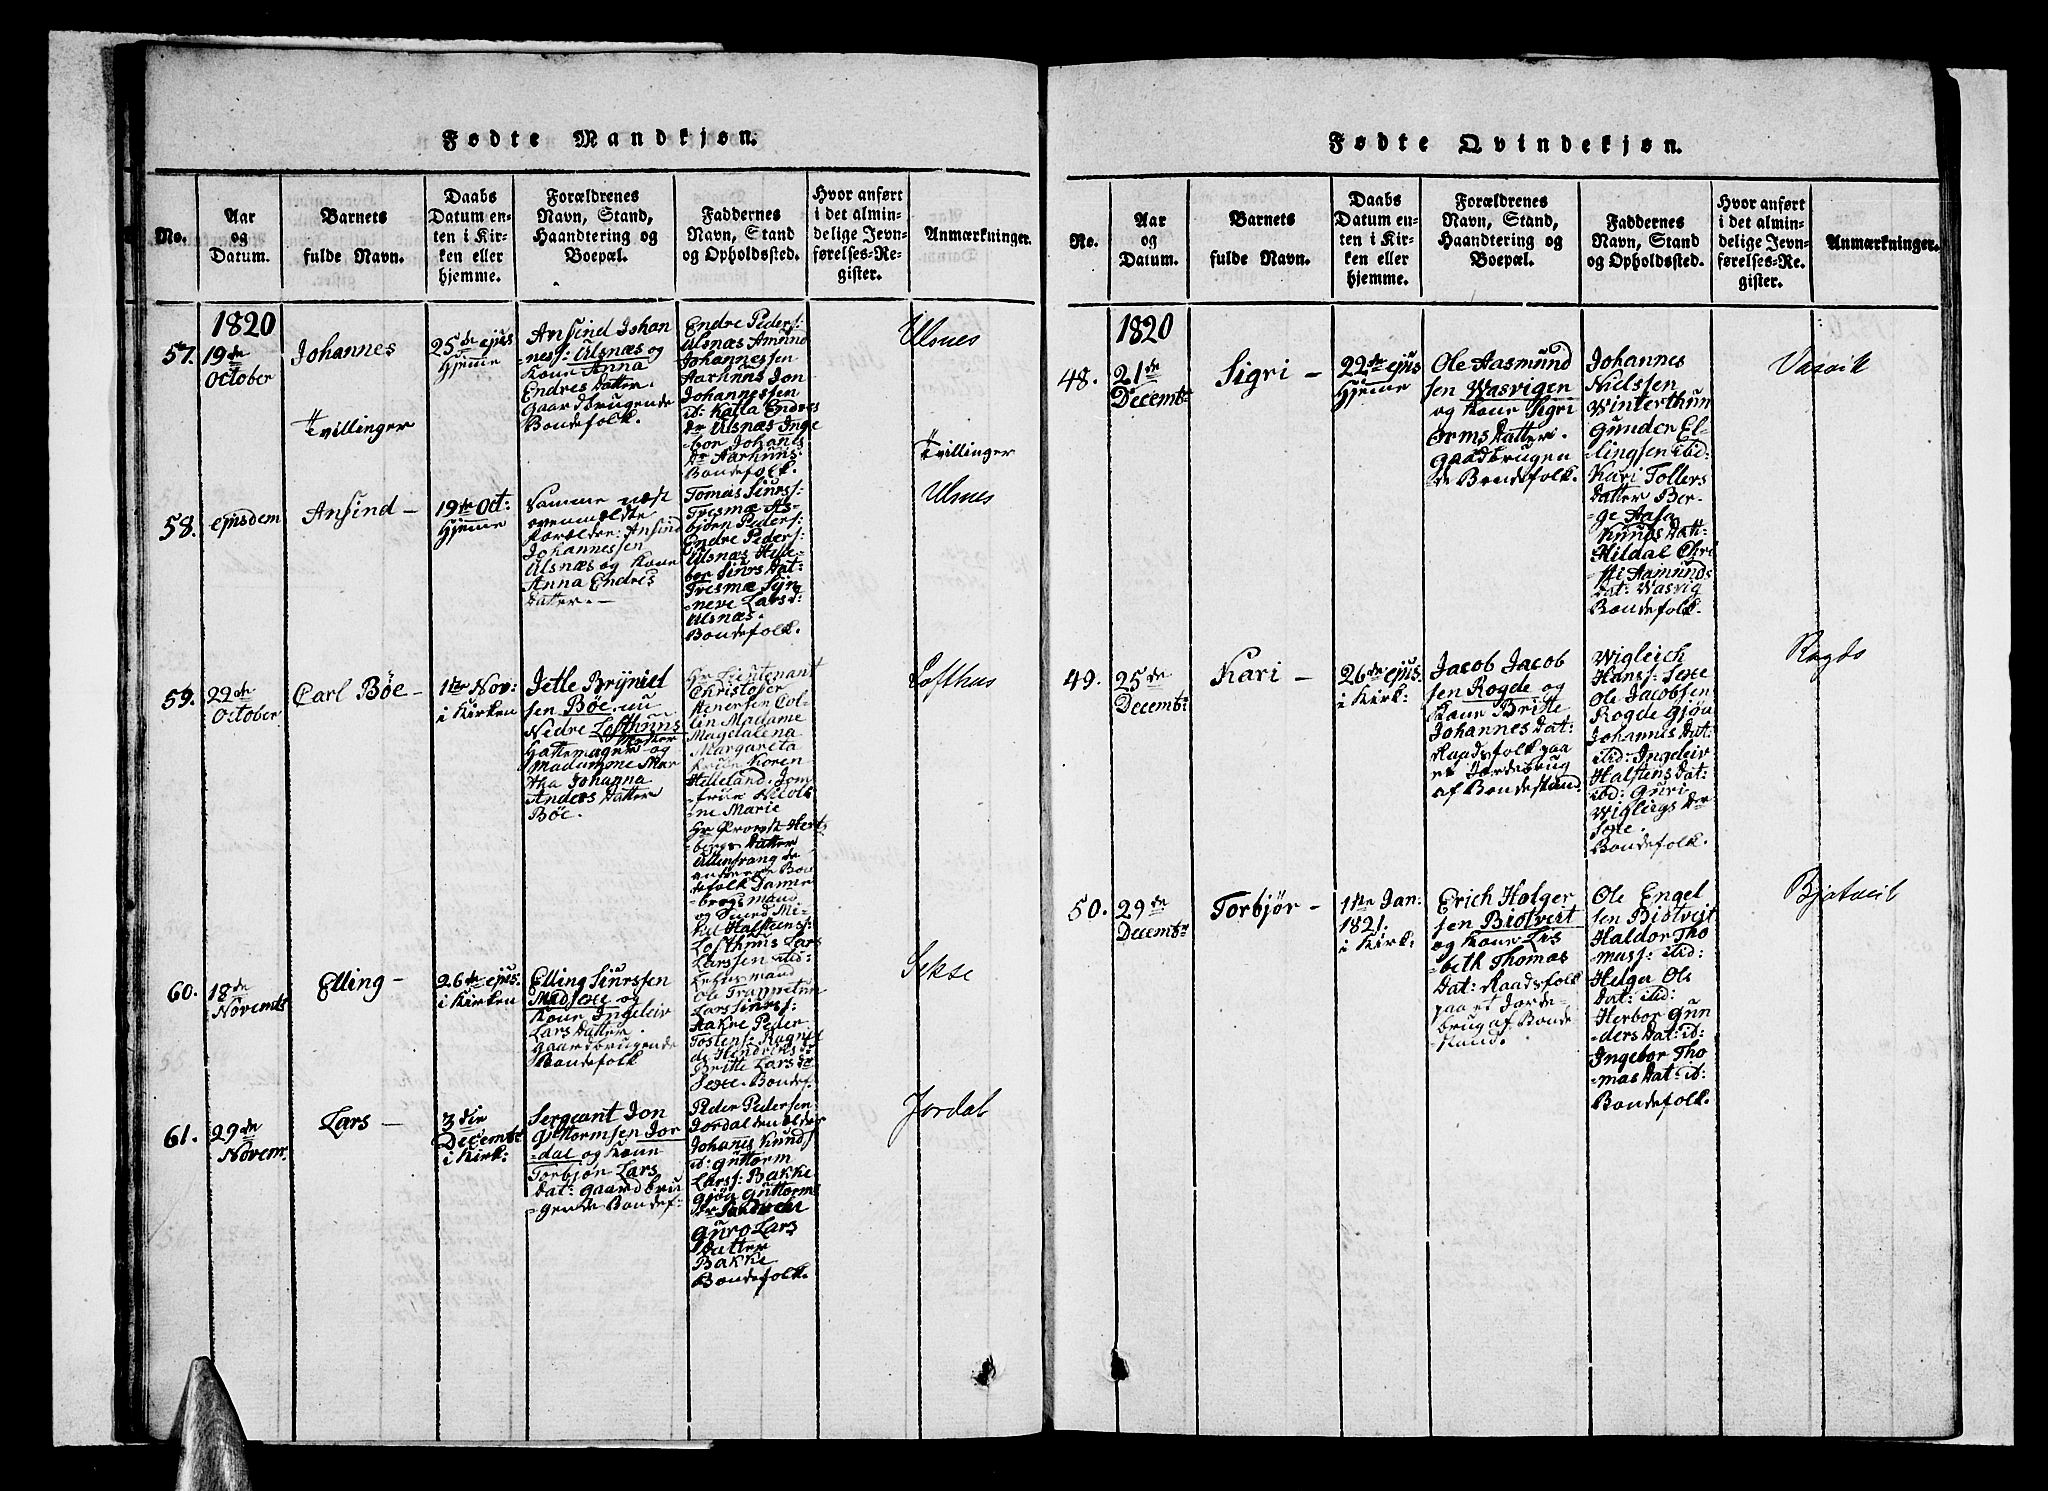 Fødte Mandkjøn.
No.
Aar
og
Datum.
Barnets
fulde Navn.
Daabs
Datum en-
ten i Kir-
ken eller
hjemme.
Forældrenes
Navn, Stand,
Haandtering og
Boepæl.
Faddernes
Navn, Stand
og Opholdssted.
Hvor anført
i det almin-
delige Jevn-
førelses-Re-
gister.
Anmærkninger.
1820
57.
19de
October
Johannes
Tvillinger
25de ejus
Hjeme
Ansind Johan
ness: Ulsnæs og
Kone Anna
Endres Datter.
gaardbrugende
Bondefolk.
Endre Peders:
Ulsnæs Amund
Johannessen
Aarhuus Jon
Johannessen
id: Katla Endres
Dr Ulsnæs Inge
bor Johanes
Dr Aarhuus
Bondefolk.
Ulsnes
Tvillinger
58.
ejusdem
Ansind –
19de Oct:
Hjeme
Samme næst
ovenmeldte
Forældre: Ansind
Johannessen
Ulsnæs og Kone
Anna Endres
Datter. –
Tomas Siurss:
Tresmæ As-
björn Peders:
Endre Peders:
Ulsnæs
bor Siurs Dat:
Tresmæ Syn-
neve Lars d:
Ulsnæs.
Bondefolk.
Ulsnes
59.
29de
October
Carl Böe –
1ste Nov:
i Kirken
Jetle Bryniel
sen Böe. nu
Nedre Lofthuus
Hattemager og
Madamme Mar
tha Johanna
Anders Datter
Böe.
Hr Lieutenant
Christofer
Henersen Col-
lin Madame
Magdalena
Margareta
Koren
Helleland. Jom
frue Nicoli-
ne Marie
Hr Provst Herts
bergs Datter
Ullensvang de
andre Bon
defolk Danne
brogsmand
og Smed Mi-
kel Halsteens:
Lofthuus Lars
Larssen itid:
Lofthus
60.
18de
Novembr
Elling –
26de ejus.
i Kirken
Elling Siurssen
Midsexe og
Kone Ingeleiv
Lars Datter.
gaardbrugende
Bondefolk
Lehnsmand
Ole Trappetun
Lars Siurss:
Aakre Peder
Tostens: Ragnil
de Hendriks d:
Britte Lars Dr
Sexe. Bondef:
Sekse
61.
29de
Novem.
Lars –
3die
Decembr
i Kirk:
Sergeant Jon
Guttormsen Jor
dal og Kone
Torbjör Lars
Dat: gaardbru
gende Bondef:
Peder Pedersen
Jordal den ældre
Johanes Knuds
id: Guttorm
Larss: Bakke
Gjöa Guttorms
Dr
Guro Lars
Datter
Bakke
Bondefolk.
Jordal
Fødte Qvindekjøn.
No.
Aar
og
Datum.
Barnets
fulde Navn.
Daabs
Datum en-
ten i Kir-
ken eller
hjemme.
Forældrenes
Navn, Stand,
Haandtering og
Boepæl.
Faddernes
Navn, Stand
og Opholdssted.
Hvor anført
i det almin-
delige Jevn-
førelses-Re-
gister.
Anmærkninger.
1820
48.
21de
Decembr
Sigri –
22de ejus
Hjeme
Ole Aasmund
sen Wasvigen
og Kone Sigri
Orms Datter.
gaadbrugen
de Bondefolk.
Johannes
Nielssen
Winterthun
Gunder El-
lingsen ibd:
Kari Tollers
Datter Ber-
ge Aasa
Knuds Datt:
Hildal Chri
sti Aamunds
Dat: Wasvig
Bondefolk.
Vasvik
49.
25de
Decembr
Kari –
26de ejus.
i Kirk:
Jacob Jacob
sen Rogde og
Kone Britte
Johannes Dat:
Raadsfolk paa
et Jordebrug
af Bondestand.
Wigleich
Hanss: Sexe
Ole Jacobsen
Rogde Gjöa
Johannes Dat:
itid: Ingeleiv
Halstens Dat:
ibd: Guri
Wigliegs Dr
Sexe.
Bondefolk.
Ragde
50.
29de
Decembr
Torbjør –
1ste Jan:
1821.
i Kirk:
Erich Holger
sen Biotveit
og Kone Lis
beth Thomas
Dat: Raadsfolk
paa et Jorde-
brug af Bonde
stand.
Ole Engel
sen Biotveit
Haldor Tho
mass: itid:
Helga Ole
Dat: itid:
Herbor Gun
ders Dat: id:
Ingebor Tho
mas Dat: id:
Bondefolk.
Bjotveit